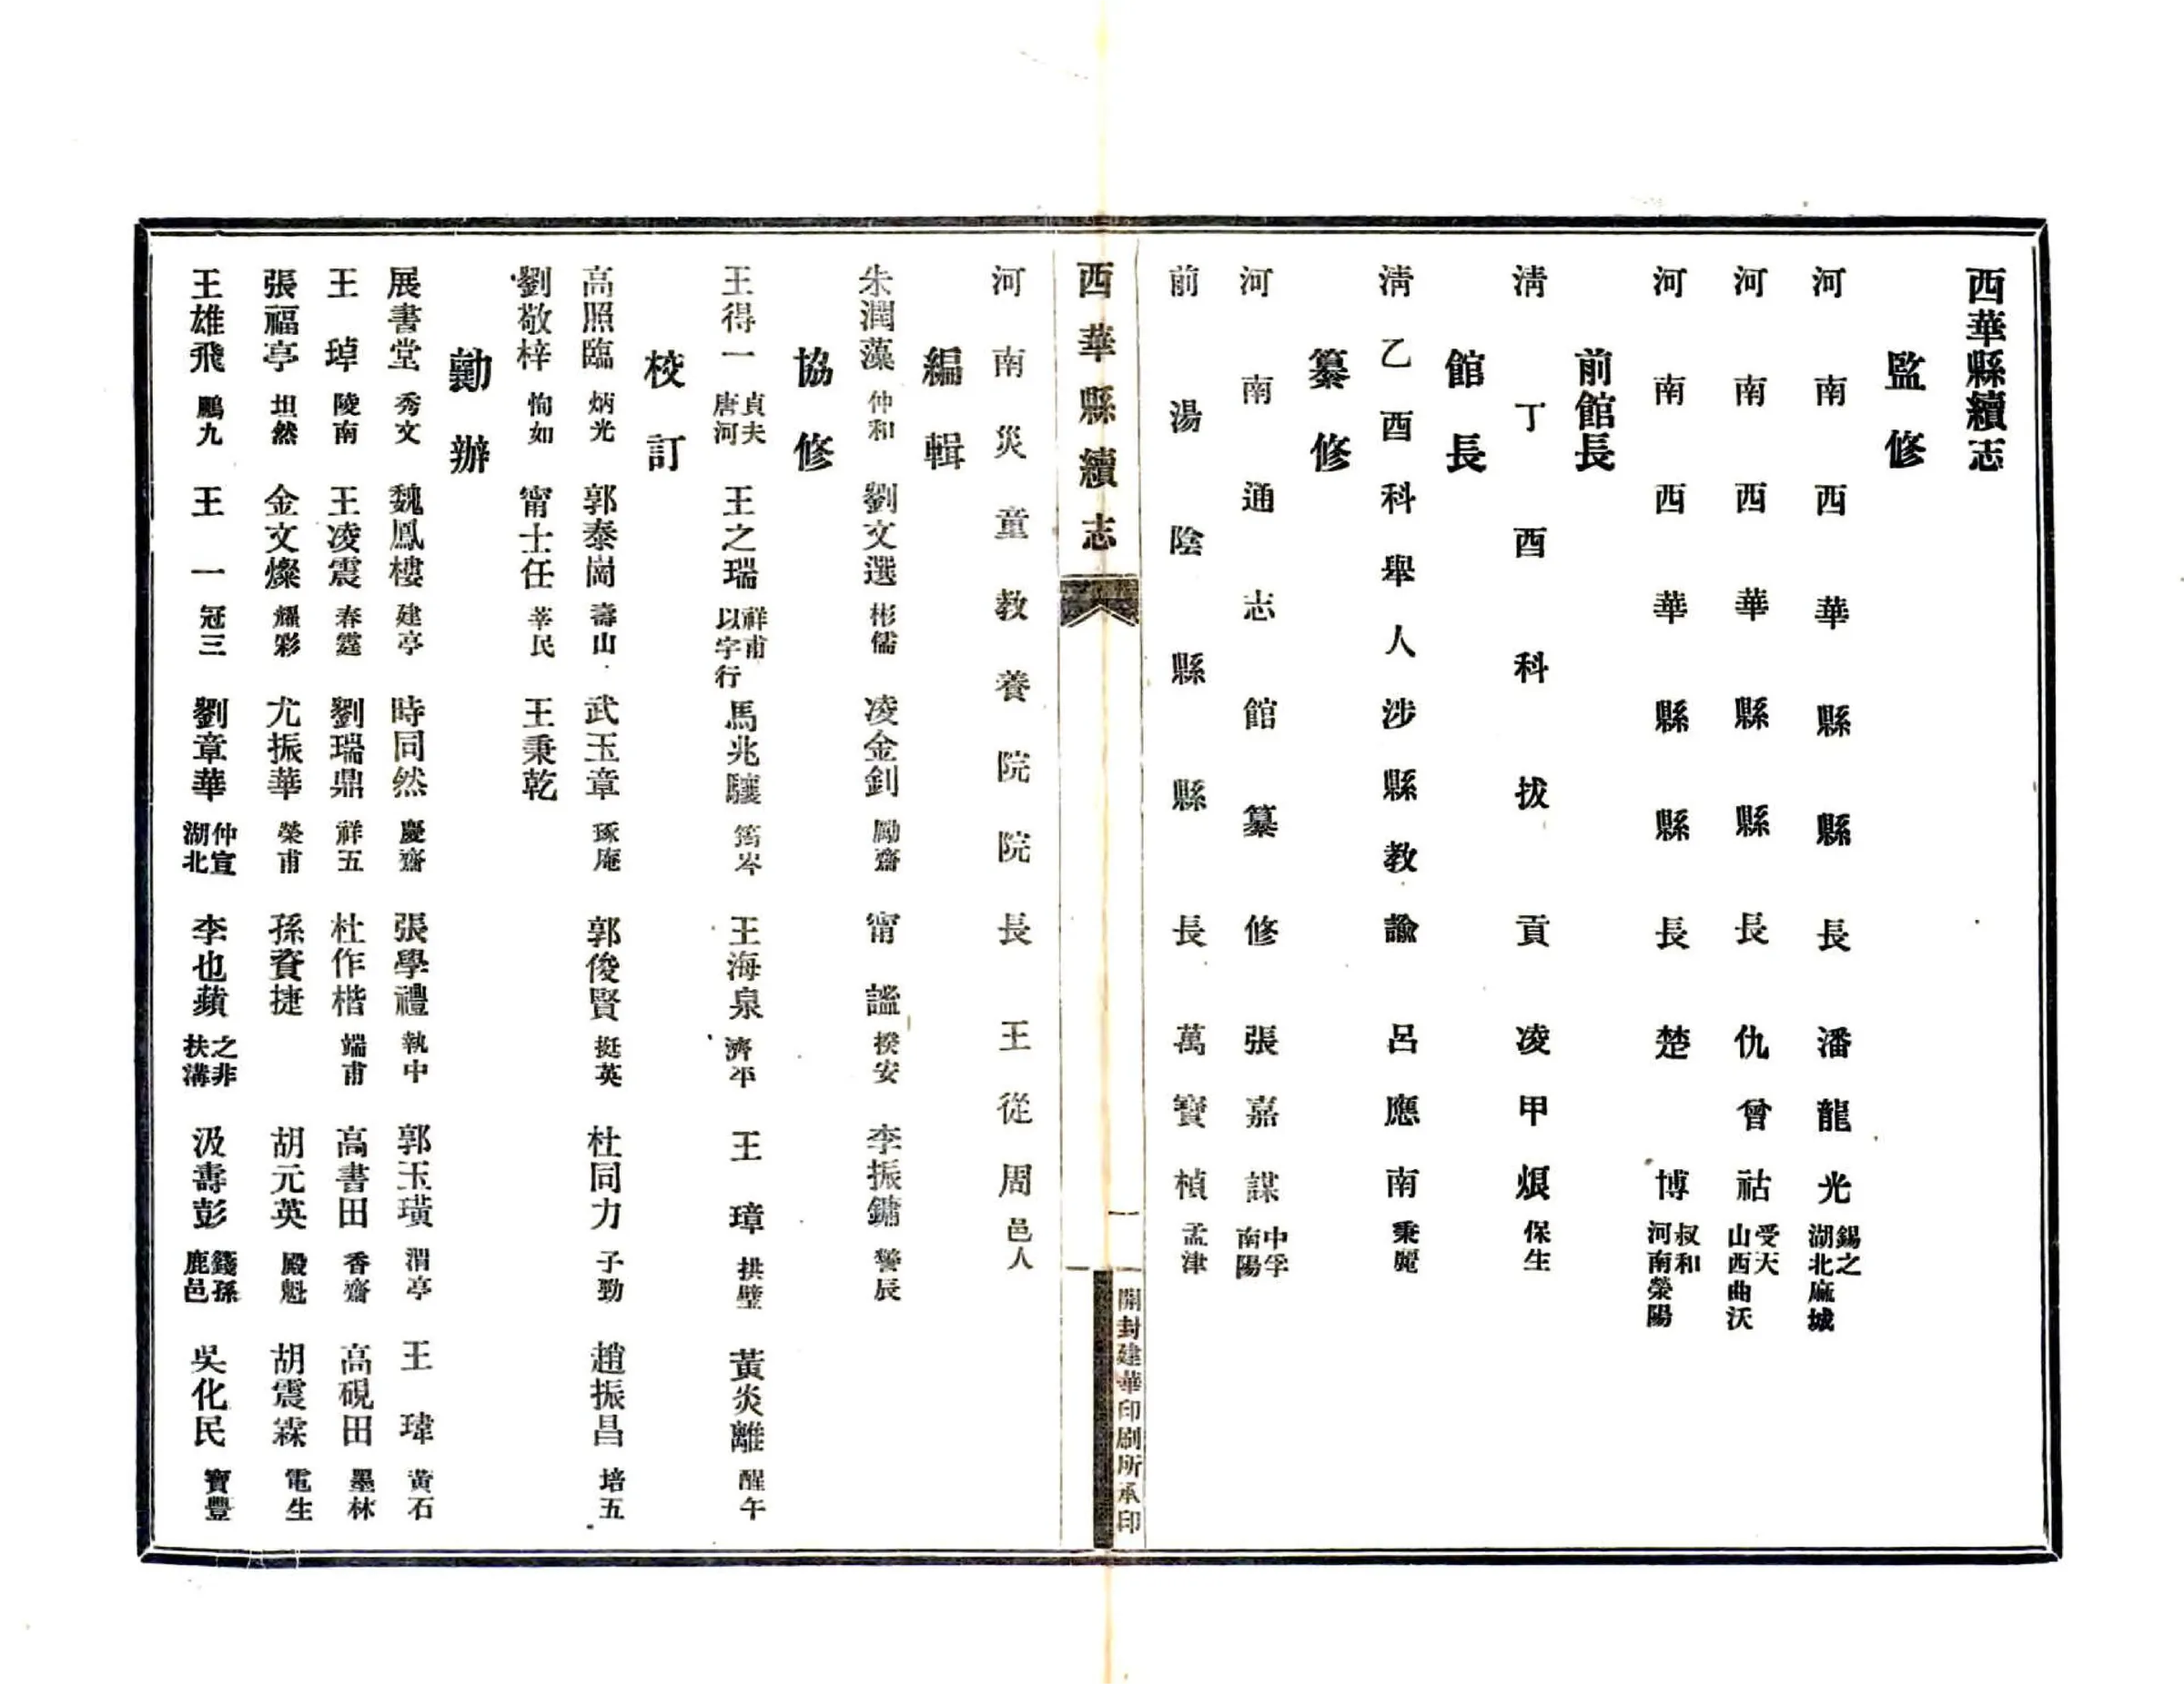 西華縣續志
監修
河南西華縣縣長潘龍光 錫之 湖北麻城
河南西華縣縣長仇曾祜 受天 山西曲沃
河南西華縣縣長楚博 叔和 河南滎陽
前館長
清丁酉科拔貢凌甲烺 保生
館長
清乙酉科舉人涉縣教諭呂應南 秉麗
纂修
河南通志館纂修張嘉謀 中孚 南陽
前湯陰縣縣長萬寶楨 孟津
西華縣續志
一
開封建華印刷所承印
河南災童教養院院長王從周 邑人
編輯
朱潤藻 仲和 劉文選 彬儒 凌金釗 勵齋 甯謐 揆安 李振鏞 警辰
協修
王得一 貞夫 唐河 王之瑞 祥甫 以字行 馬兆驤 筠岑 王海泉 濟平 王璋 拱璧 黃炎離 醒午
校訂
高照臨 炳光 郭泰崗 壽山 武玉章 琢庵 郭俊賢 挺英 杜同力 子勁 趙振昌 培五
劉敬梓 恂如 甯士任 莘民 王秉乾
勷辦
展書堂 秀文 魏鳳樓 建亭 時同然 慶齋 張學禮 執中 郭玉璜 渭亭 王瑋 黃石
王㻂 陵南 王凌震 春霆 劉瑞鼎 祥五 杜作楷 端甫 高書田 香齋 高硯田 墨林
張福亭 坦然 金文燦 耀彩 尤振華 榮甫 孫資捷 胡元英 殿魁 胡震霖 電生
王雄飛 鵬九 王一 冠三 劉章華 仲宣 湖北 李也蘋 之非 扶溝 汲壽彭 籛孫 鹿邑 吳化民 寶豐